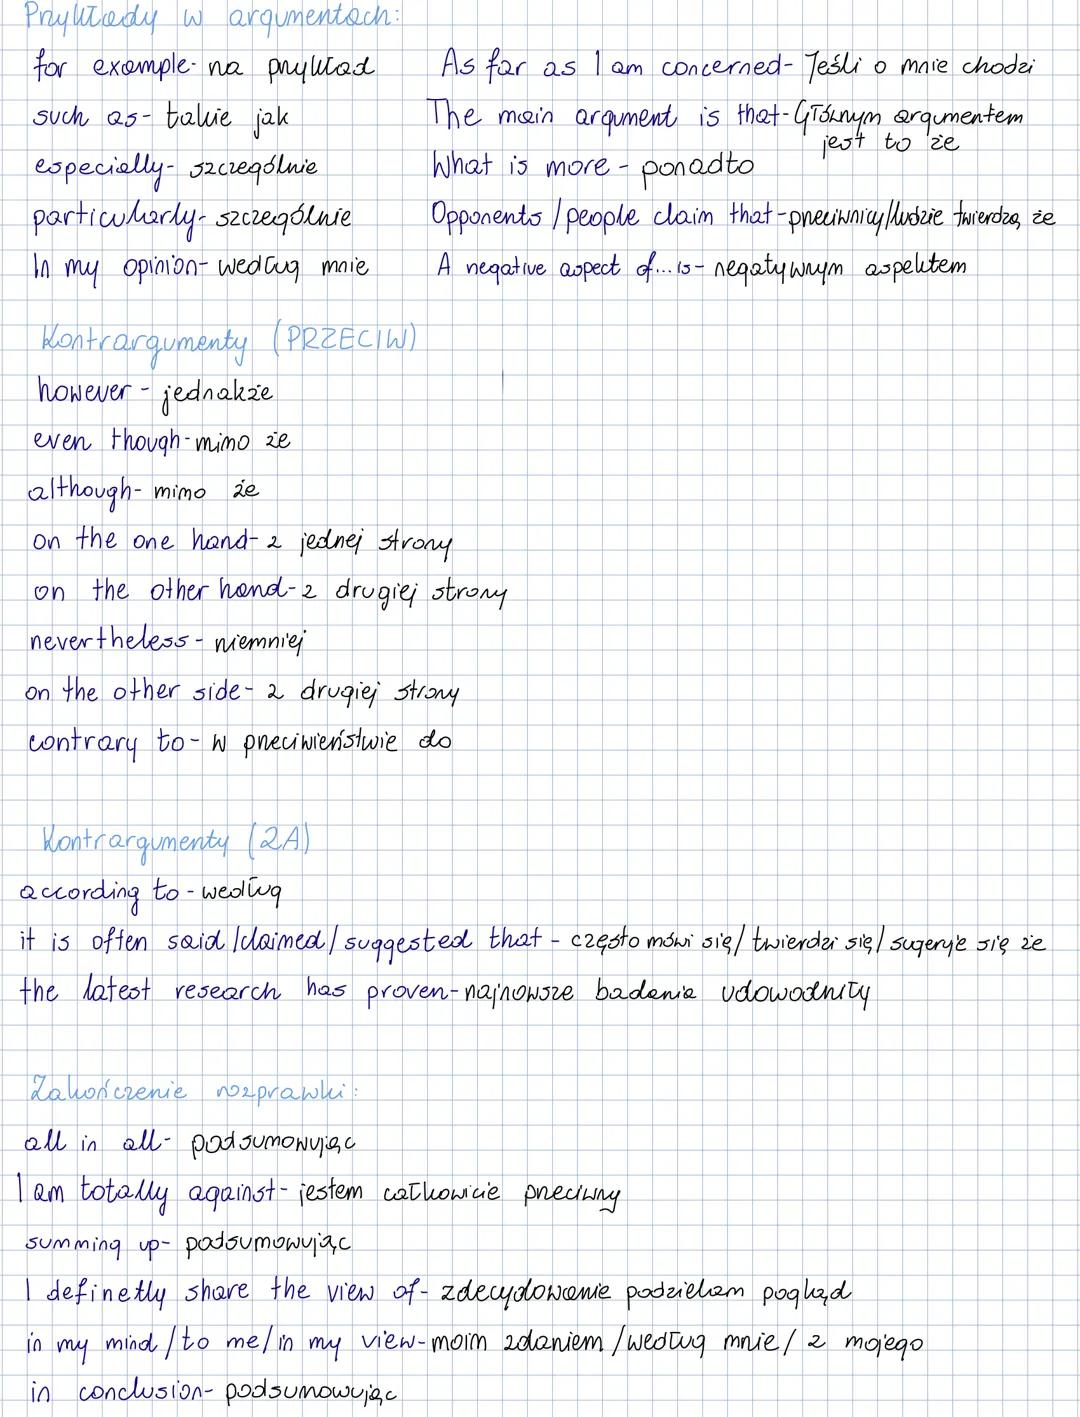 Przykłady w argumentach:
for example- na przykład
As far as I am concerned- Jeśli o mnie chodzi
such as- takie jak
The main argument is that- Głównym argumentem jest to że
especially- szczególnie
What is more - ponadto
particularly- szczególnie
Opponents /people claim that-przeciwnicy/ludzie twierdzą, że
In my opinion- według mnie
A negative aspect of...is- negatywnym aspektem
Kontrargumenty (PRZECIW)
however - jednakże
even though- mimo że
although- mimo że
on the one hand- z jednej strony
on the other hand- z drugiej strony
nevertheless - niemniej
on the other side- z drugiej strony
contrary to- w przeciwieństwie do
Kontrargumenty (ZA)
according to - według
it is often said /claimed/ suggested that - często mówi się/ twierdzi się/ sugeruje się że
the latest research has proven- najnowsze badania udowodniły
Zakończenie rozprawki:
all in all- podsumowując
I am totally against- jestem całkowicie przeciwny
summing up- podsumowując
I definetly share the view of- zdecydowanie podzielam pogląd
in my mind /to me/in my view-moim zdaniem /według mnie/ z mojego
in conclusion- podsumowując